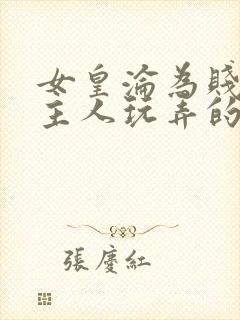 女皇淪為賤
主人玩弄的
張慶紅